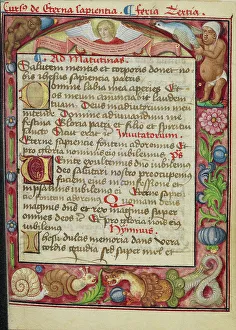 Curso de Eterna sapientia. feria Tertia
Ad Matutinas.
Salutem mentis et corporis donet no
bis iesus sapientia patris
Domine labia mea aperies. Et
os meum annunciabit laudem
tuam. Deus in adiutorium meum
intende. Domine ad adiuuandum
me festina. Gloria patri et filio et spiritui
sancto Sicut erat Inuitatorium.
Eterne sapientie fontem adoremus. Et
pro gloria nominis eius iubilemus. Ps
Venite exultemus domino iubilemus
deo salutari nostro preoccupemus
faciem eius in confessione et
in psalmis iubilemus ei. Eterne
fontem adoremus. Quoniam deus
magnus dominus et rex magnus super
omnes deos Et pro gloria nominis eius
iubilemus Hymnus.
Ihesu dulcis memoria dans vera
cordis gaudia sed super mel et